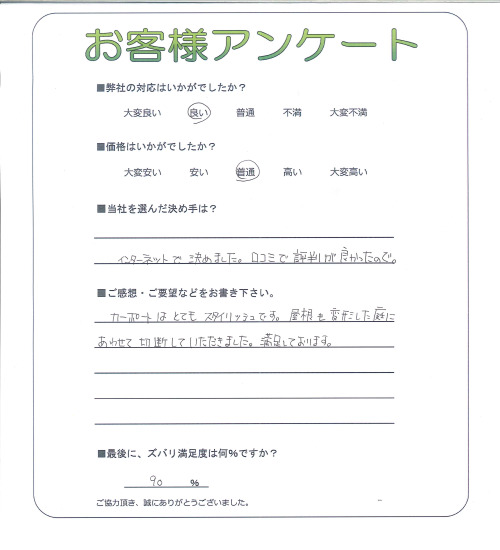 お客様アンケート
■弊社の対応はいかがでしたか?
大変良い 良い 普通 不満 大変不満
■価格はいかがでしたか?
大変安い 安い 普通 高い 大変高い
■当社を選んだ決め手は?
インターネットで決めました。口コミで評判が良かったので。
■ご感想・ご要望などをお書き下さい。
カーポートはとてもスタイリッシュです。屋根も変形した庭に
あわせて切断していただきました。満足しております。
■最後に、ズバリ満足度は何%ですか?
90 %
ご協力頂き、誠にありがとうございました。